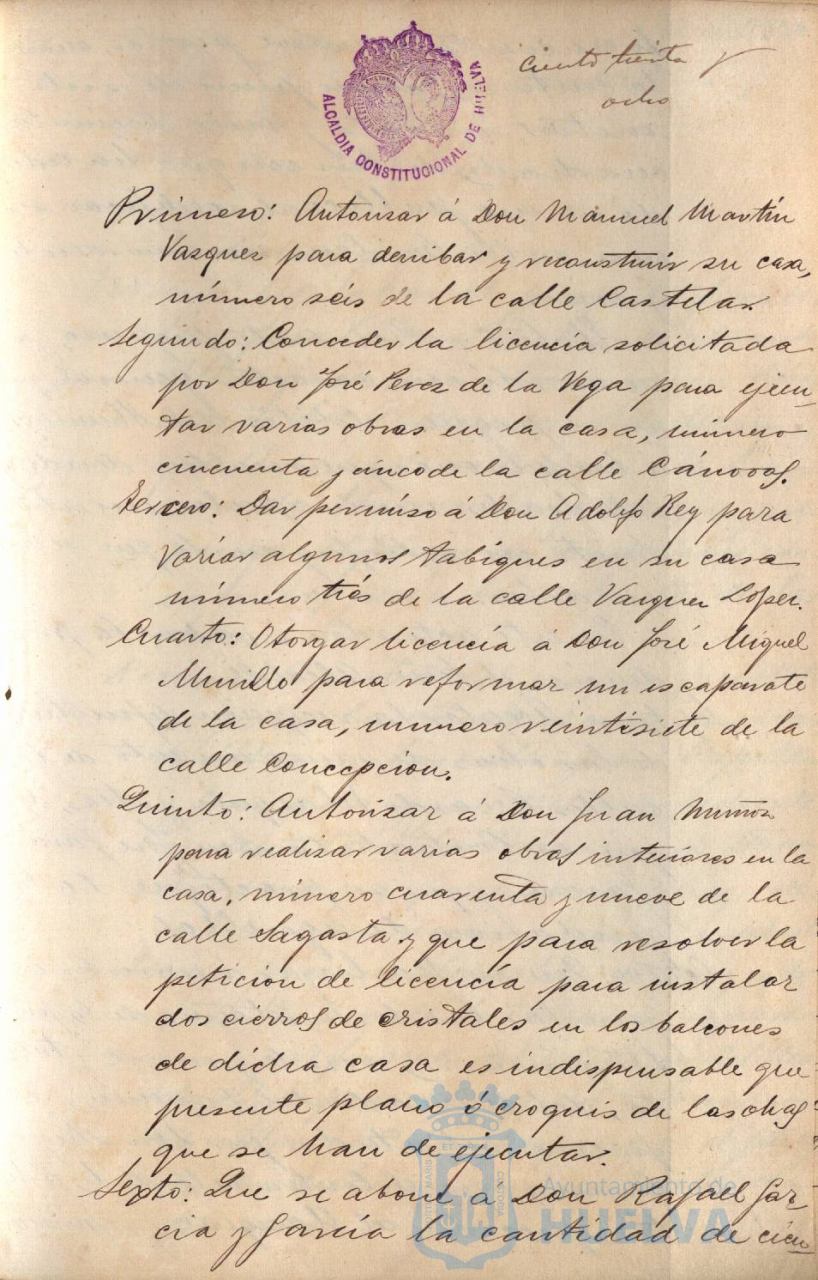 ciento treinta y
ocho
ALCALDIA CONSTITUCIONAL DE HUELVA
Primero: Autorisar á Don Manuel Martín
Vasquez para derribar y reconstruir su casa,
número seis de la calle Castelar.
Segundo: Conceder la licencia solicitada
por Don José Perez de la Vega para ejecu-
tar varias obras en la casa, número
cincuenta y cinco de la calle Cánovas.
Tercero: Dar permiso á Don Adolfo Rey para
variar algunos tabiques en su casa
número trés de la calle Vazquez López.
Cuarto: Otorgar licencía á Don José Miguel
Murillo para reformar un escaparate
de la casa, número veintisiete de la
calle Concepcion.
Quinto: Autorizar á Don Juan Muñoz
para realizar varias obras interiores en la
casa, número cuarenta y nueve de la
calle Sagasta y que para resolver la
peticion de licencía para instalar
dos cierros de cristales en los balcones
de dicha casa es indispensable que
presente plano ó croquis de las obras
que se han de ejecutar.
Sexto: Que se abone a Don Rafael Gar-
cia y García la cantidad de cien
Ayuntamiento de
HUELVA